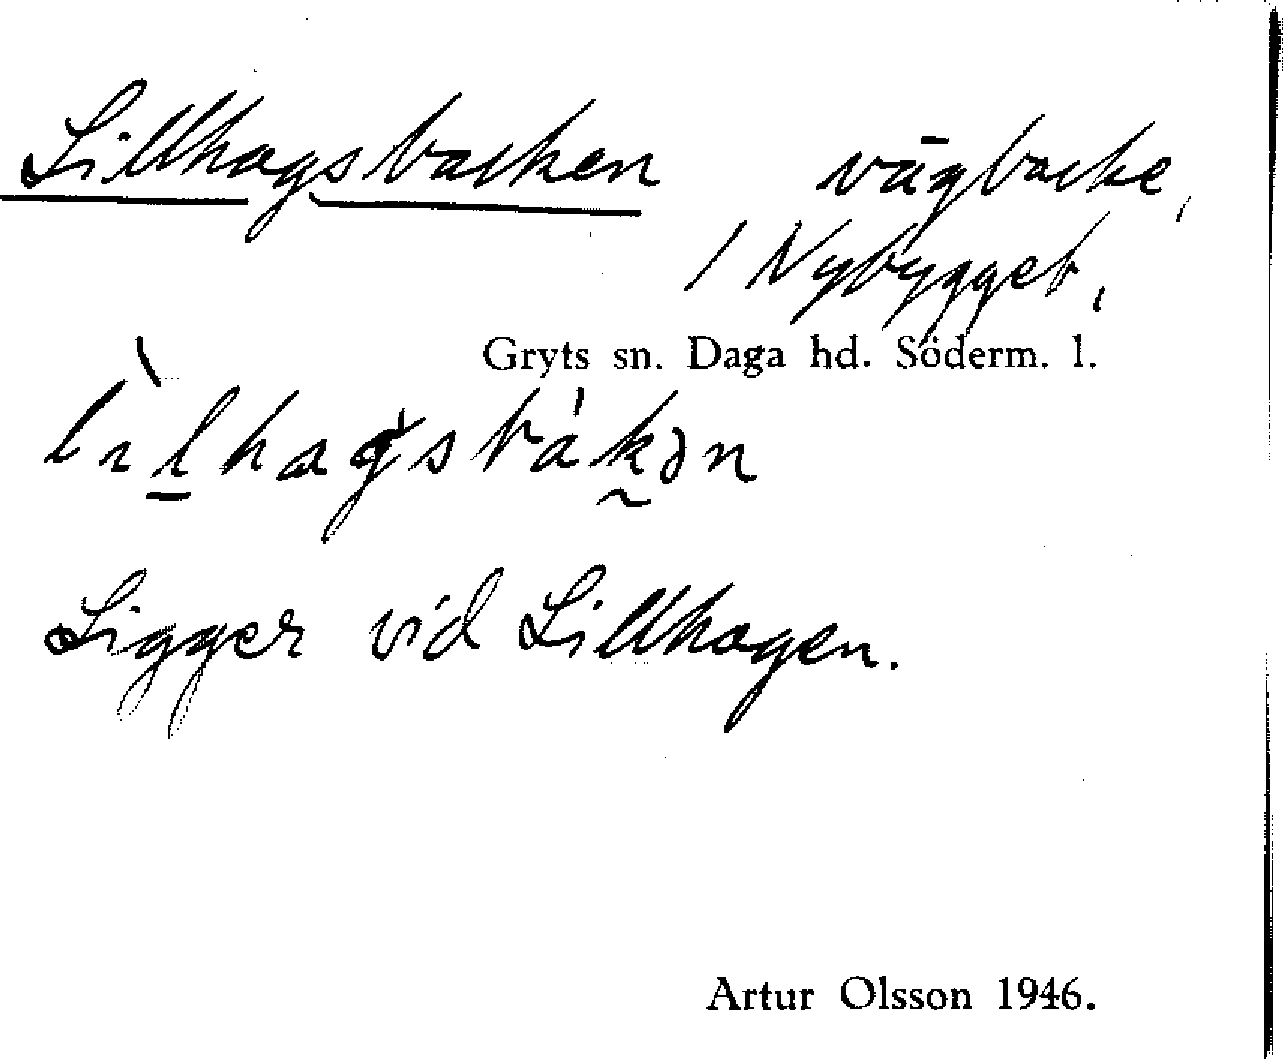 Lillhagsbacken vägbacke,
/ Nybygget,
Gryts sn. Daga hd. Söderm. l.
Ligger vid Lillhagen.
Artur Olsson 1946.